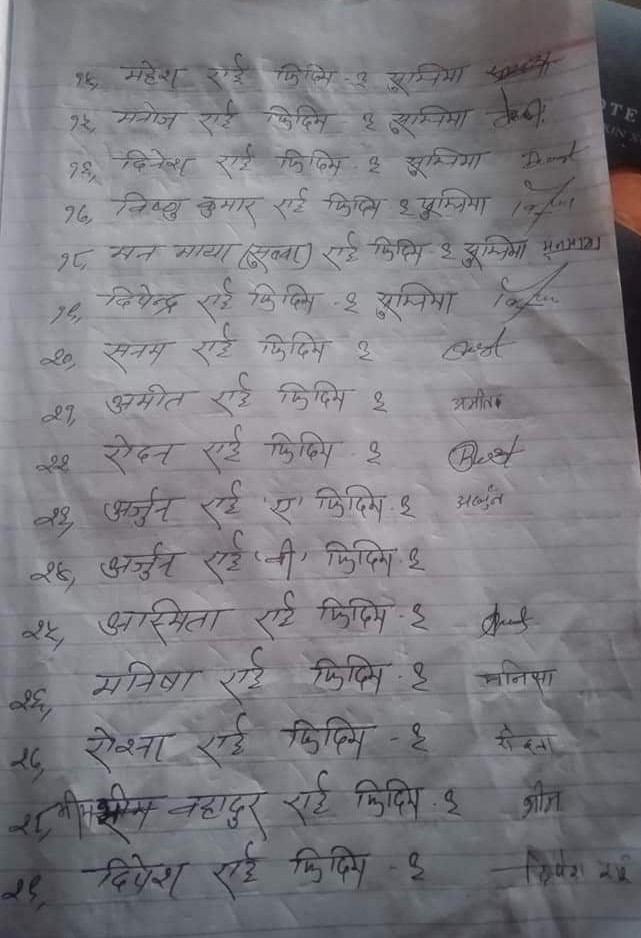 १४, महेश राई फिदिम - १ सुम्निमा
१५, मनोज राई फिदिम १ सुम्निमा
१६, दिनेश राई फिदिम - १ सुम्निमा
१७, विष्णु कुमार राई फिदिम १ सुम्निमा
१८, मन माया (सुब्बा) राई फिदिम - १ सुम्निमा मनमाया
१९, दिपेन्द्र राई फिदिम - १ सुम्निमा
२०, सनम राई फिदिम १
२१, अमीत राई फिदिम १ अमीत
२२ रोदन राई फिदिम - १
२३, अर्जुन राई 'ए' फिदिम - १ अर्जुन
२४, अर्जुन राई 'बी' फिदिम - १
२५, आस्मिता राई फिदिम - १
२६, मनिषा राई फिदिम - १ मनिसा
२७, राई फिदिम - १
२८, भीम बहादुर राई फिदिम - १ भीम
२९, दिपेश राई फिदिम - १ दिपेश राई